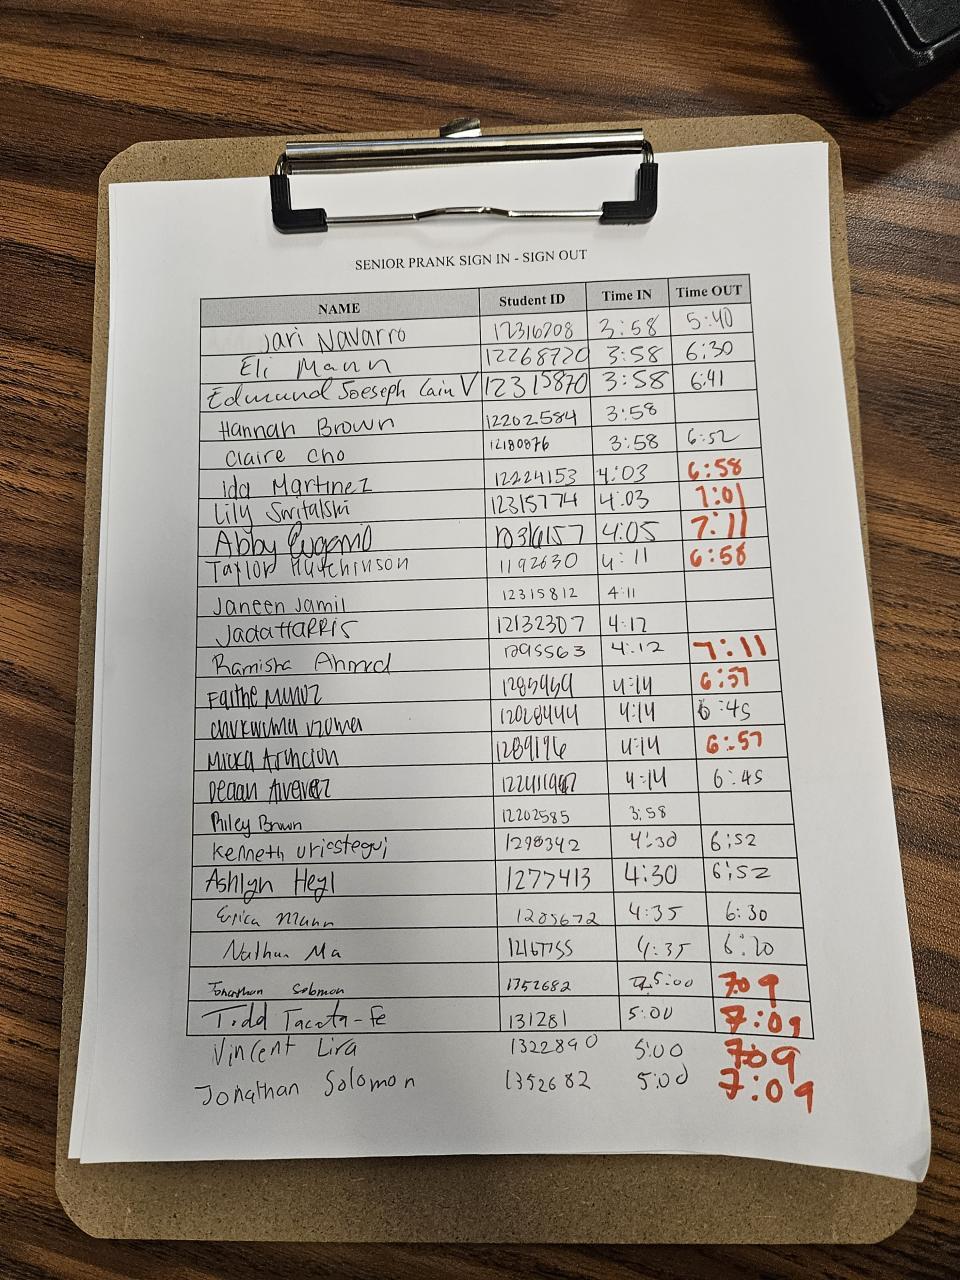 SENIOR PRANK SIGN IN - SIGN OUT
NAME Student ID Time IN Time OUT
Jari Navarro 12316208 3:58 5:40
Eli Mann 12268720 3:58 6:30
Edmund Soeseph Cain V 12315870 3:58 6:41
Hannah Brown 12202584 3:58
Claire Cho 12180876 3:58 6:52
Ida Martinez 12224153 4:03 6:58
Lily 12315774 4:03 7:01
Abby 4:05 7:11
Taylor Hutchinson 1192630 4:11 6:58
Janeen Jamil 12315812 4:11
Jada HARRIS 12132307 4:12
Ramisha Ahmed 1295563 4:12 7:11
Faithe Munoz 4:14 6:57
12028444 4:14 6:45
Asuncion 1289196 4:14 6:57
4:14 6:45
Riley Brown 12202585 3:58
Kenneth Uriostegui 1298342 4:30 6:52
Ashlyn Heyl 1277413 4:30 6:52
Erica Mann 1205672 4:35 6:30
Nathan Ma 4:35 6:20
Jonathan Solomon 1352682 5:00 709
Todd Tacata-Fe 131281 5:00 7:09
Vincent Lira 1322890 5:00 709
Jonathan Solomon 1352682 5:00 7:09